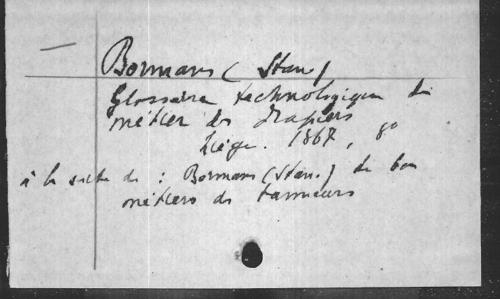 Bormans (Stan)
Glossaire technologique du
métier des drapiers
Liége. 1867, 8o
à la suite de : Bormans (Stan.) Le bon
métiers des tanneurs